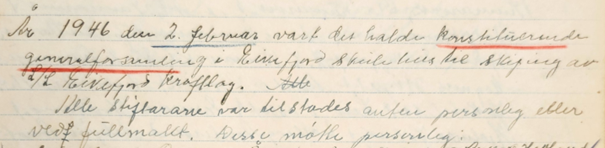 År 1946 den 2. februar vart det halde konstituerende
generalforsamling i Eikefjord skulehus til skiping av
A/L Eikefjord Kraftlag. Alle
Alle stiftarane var tilstades anten personleg eller
ved fullmakt. Desse møtte personleg: